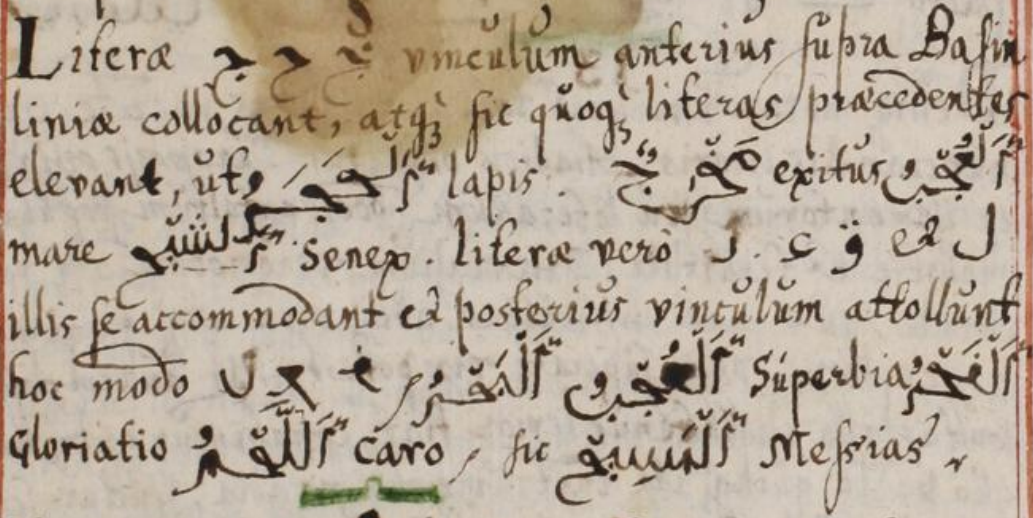 Literæ ج ح خ ج vinculum anterius supra Basin
liniæ collocant, atq₃ sic quoq₃ literas præcedentes
elevant, ut اَلْحَجَرُ lapis . مَخْرَج exitus اَلْبَحْرُ
mare اَلشَّيْخُ Senex . literæ verò ر . ء و et ل
illis se accommodant et posterius vinculum attollunt
hoc modo اَلْفَخْرُ Superbia
Gloriatio اَللَّحْمُ caro , sic اَلْمَسِيحُ Messias